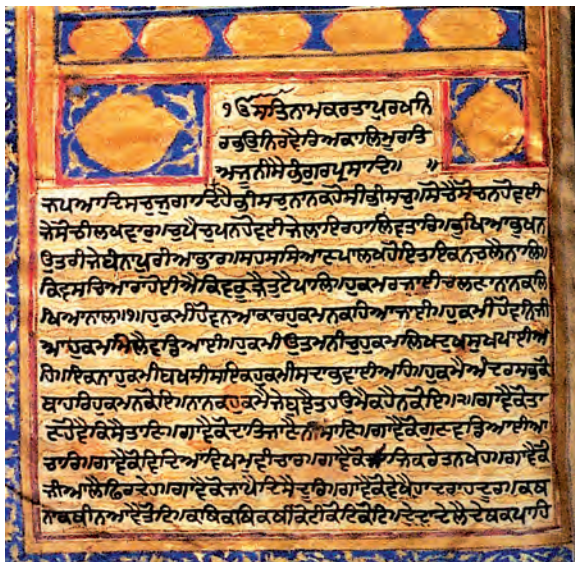 ੴਸਤਿਨਾਮਕਰਤਾਪੁਰਖਨਿ
ਰਭਉਨਿਰਵੈਰਿਅਕਾਲਿਮੂਰਤਿ
ਅਜੂਨੀਸੈਭੰਗੁਰਪ੍ਰਸਾਦਿ॥ ॥
ਜਪਆਦਿਸਚੁਜੁਗਾਦਿਹੈਭੀਸਚੁਨਾਨਕਹੋਸੀਭੀਸਚੁ॥ਸੋਚੈਸੋਚਨਹੋਵਈ
ਜੇਸੋਚੀਲਖਵਾਰ॥ਚੁਪੈਚੁਪਨਹੋਵਈਜੇਲਾਇਰਹਾਲਿਵਤਾਰ॥ਭੁਖਿਆਭੁਖਨ
ਉਤਰੀਜੇਬੰਨਾਪੁਰੀਆਭਾਰ॥ਸਹਸਸਿਆਣਪਾਲਖਹੋਇਤਇਕਨਚਲੈਨਾਲਿ॥
ਕਿਵਸਚਿਆਰਾਹੋਈਐਕਿਵਕੂੜੈਤੁਟੈਪਾਲਿ॥ਹੁਕਮਰਜਾਈਚਲਣਾਨਾਨਕਲਿ
ਖਿਆਨਾਲ॥੧॥ਹੁਕਮੀਹੋਵਨਆਕਾਰਹੁਕਮਨਕਹਿਆਜਾਈ॥ਹੁਕਮੀਹੋਵਨਿਜੀ
ਆਹੁਕਮਮਿਲੈਵਡਿਆਈ॥ਹੁਕਮੀਉਤਮਨੀਚੁਹੁਕਮਲਿਖਦੁਖਸੁਖਪਾਈਅ
ਹਿ॥ਇਕਨਾਹੁਕਮੀਬਖਸੀਸਇਕਹੁਕਮੀਸਦਾਭਵਾਈਅਹਿ॥ਹੁਕਮੈਅੰਦਰਸਭੁਕੋ
ਬਾਹਰਿਹੁਕਮਨਕੋਇ॥ਨਾਨਕਹੁਕਮੈਜੇਬੁਝੈਤਹਉਮੈਕਹੈਨਕੋਇ॥੨॥ਗਾਵੈਕੋਤਾ
ਣਹੋਵੈਕਿਸੈਤਾਣਿ॥ਗਾਵੈਕੋਦਾਤਿਜਾਣੈਨੀਸਾਣਿ॥ਗਾਵੈਕੋਗੁਣਵਡਿਆਈਆ
ਚਾਰ॥ਗਾਵੈਕੋਵਿਦਿਆਵਿਖਮੁਵੀਚਾਰ॥ਗਾਵੈਕੋਸਾਜਿਕਰੇਤਨਖੇਹ॥ਗਾਵੈਕੋ
ਜੀਆਲੈਫਿਰਦੇਹ॥ਗਾਵੈਕੋਜਾਪੈਦਿਸੈਦੂਰਿ॥ਗਾਵੈਕੋਵੇਖੈਹਾਦਰਾਹਦੂਰ॥ਕਥ
ਨਾਕਥੀਨਆਵੈਤੋਟਿ॥ਕਥਿਕਥਿਕਥੀਕੋਟੀਕੋਟਿਕੋਟਿ॥ਦੇਦਾਦੇਲੈਦੇਥਕਪਾਹਿ